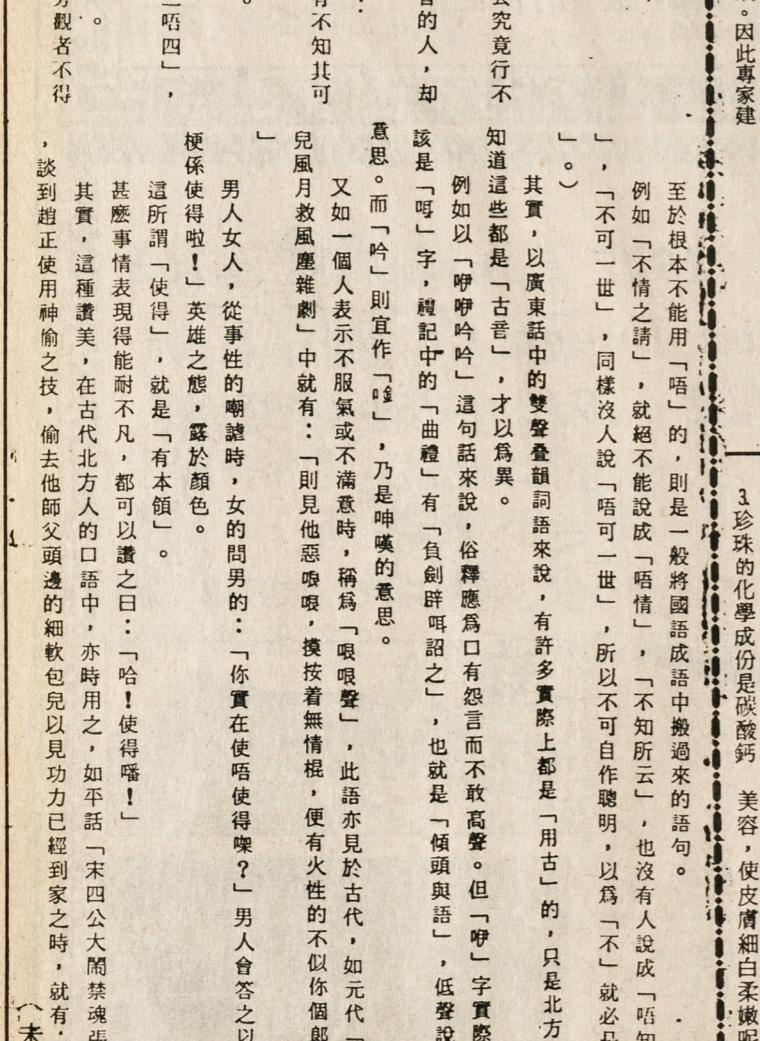 。因此專家建
3.珍珠的化學成份是碳酸鈣
美容，使皮膚細白柔嫩呢
究竟行不
的人，却
有不知其可
唔四」，
。
觀者不得
至於根本不能用「唔」的，則是一般將國語成語中搬過來的語句。
例如「不情之請」，就絕不能說成「唔情」，「不知所云」，也沒有人說成「唔知
」，「不可一世」，同樣沒人說「唔可一世」，所以不可自作聰明，以爲「不」就必
」。）
其實，以廣東話中的雙聲叠韻詞語來說，有許多實際上都是「用古」的，只是北方
知道這些都是「古音」，才以爲異。
例如以「咿咿吟吟」這句話來說，俗釋應爲口有怨言而不敢高聲。但「咿」字實際
該是「咡」字，禮記中的「曲禮」有「負劍辟咡詔之」，也就是「傾頭與語」，低聲說
意思。而「吟」則宜作「唫」，乃是呻嘆的意思。
又如一個人表示不服氣或不滿意時，稱爲「哏哏聲」，此語亦見於古代，如元代「
兒風月救風塵雜劇」中就有：「則見他惡哏哏，摸按着無情棍，便有火性的不似你個郎
」
男人女人，從事性的嘲謔時，女的問男的：「你實在使唔使得㗎？」男人會答之以
梗係使得啦！」英雄之態，露於顏色。
這所謂「使得」，就是「有本領」。
甚麽事情表現得能耐不凡，都可以讚之曰：「哈！使得噃！」
其實，這種讚美，在古代北方人的口語中，亦時用之，如平話「宋四公大鬧禁魂張
，談到趙正使用神偷之技，偷去他師父頭邊的細軟包兒以見功力已經到家之時，就有：
（未